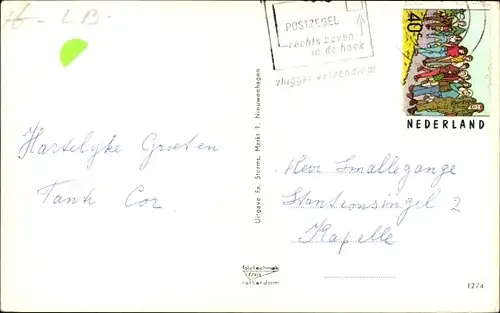 H - L B.
POSTZEGEL
rechts boven
in de hoek
vlugger verzending!
40c
NEDERLAND
Hartelyke Groeten
Tante Cor.
Uitgave Fa. Storms, Markt 1, Nieuwenhagen
Heer Smallegange
Stationsingel 2
Kapelle
fototechniek
rotterdam
1274